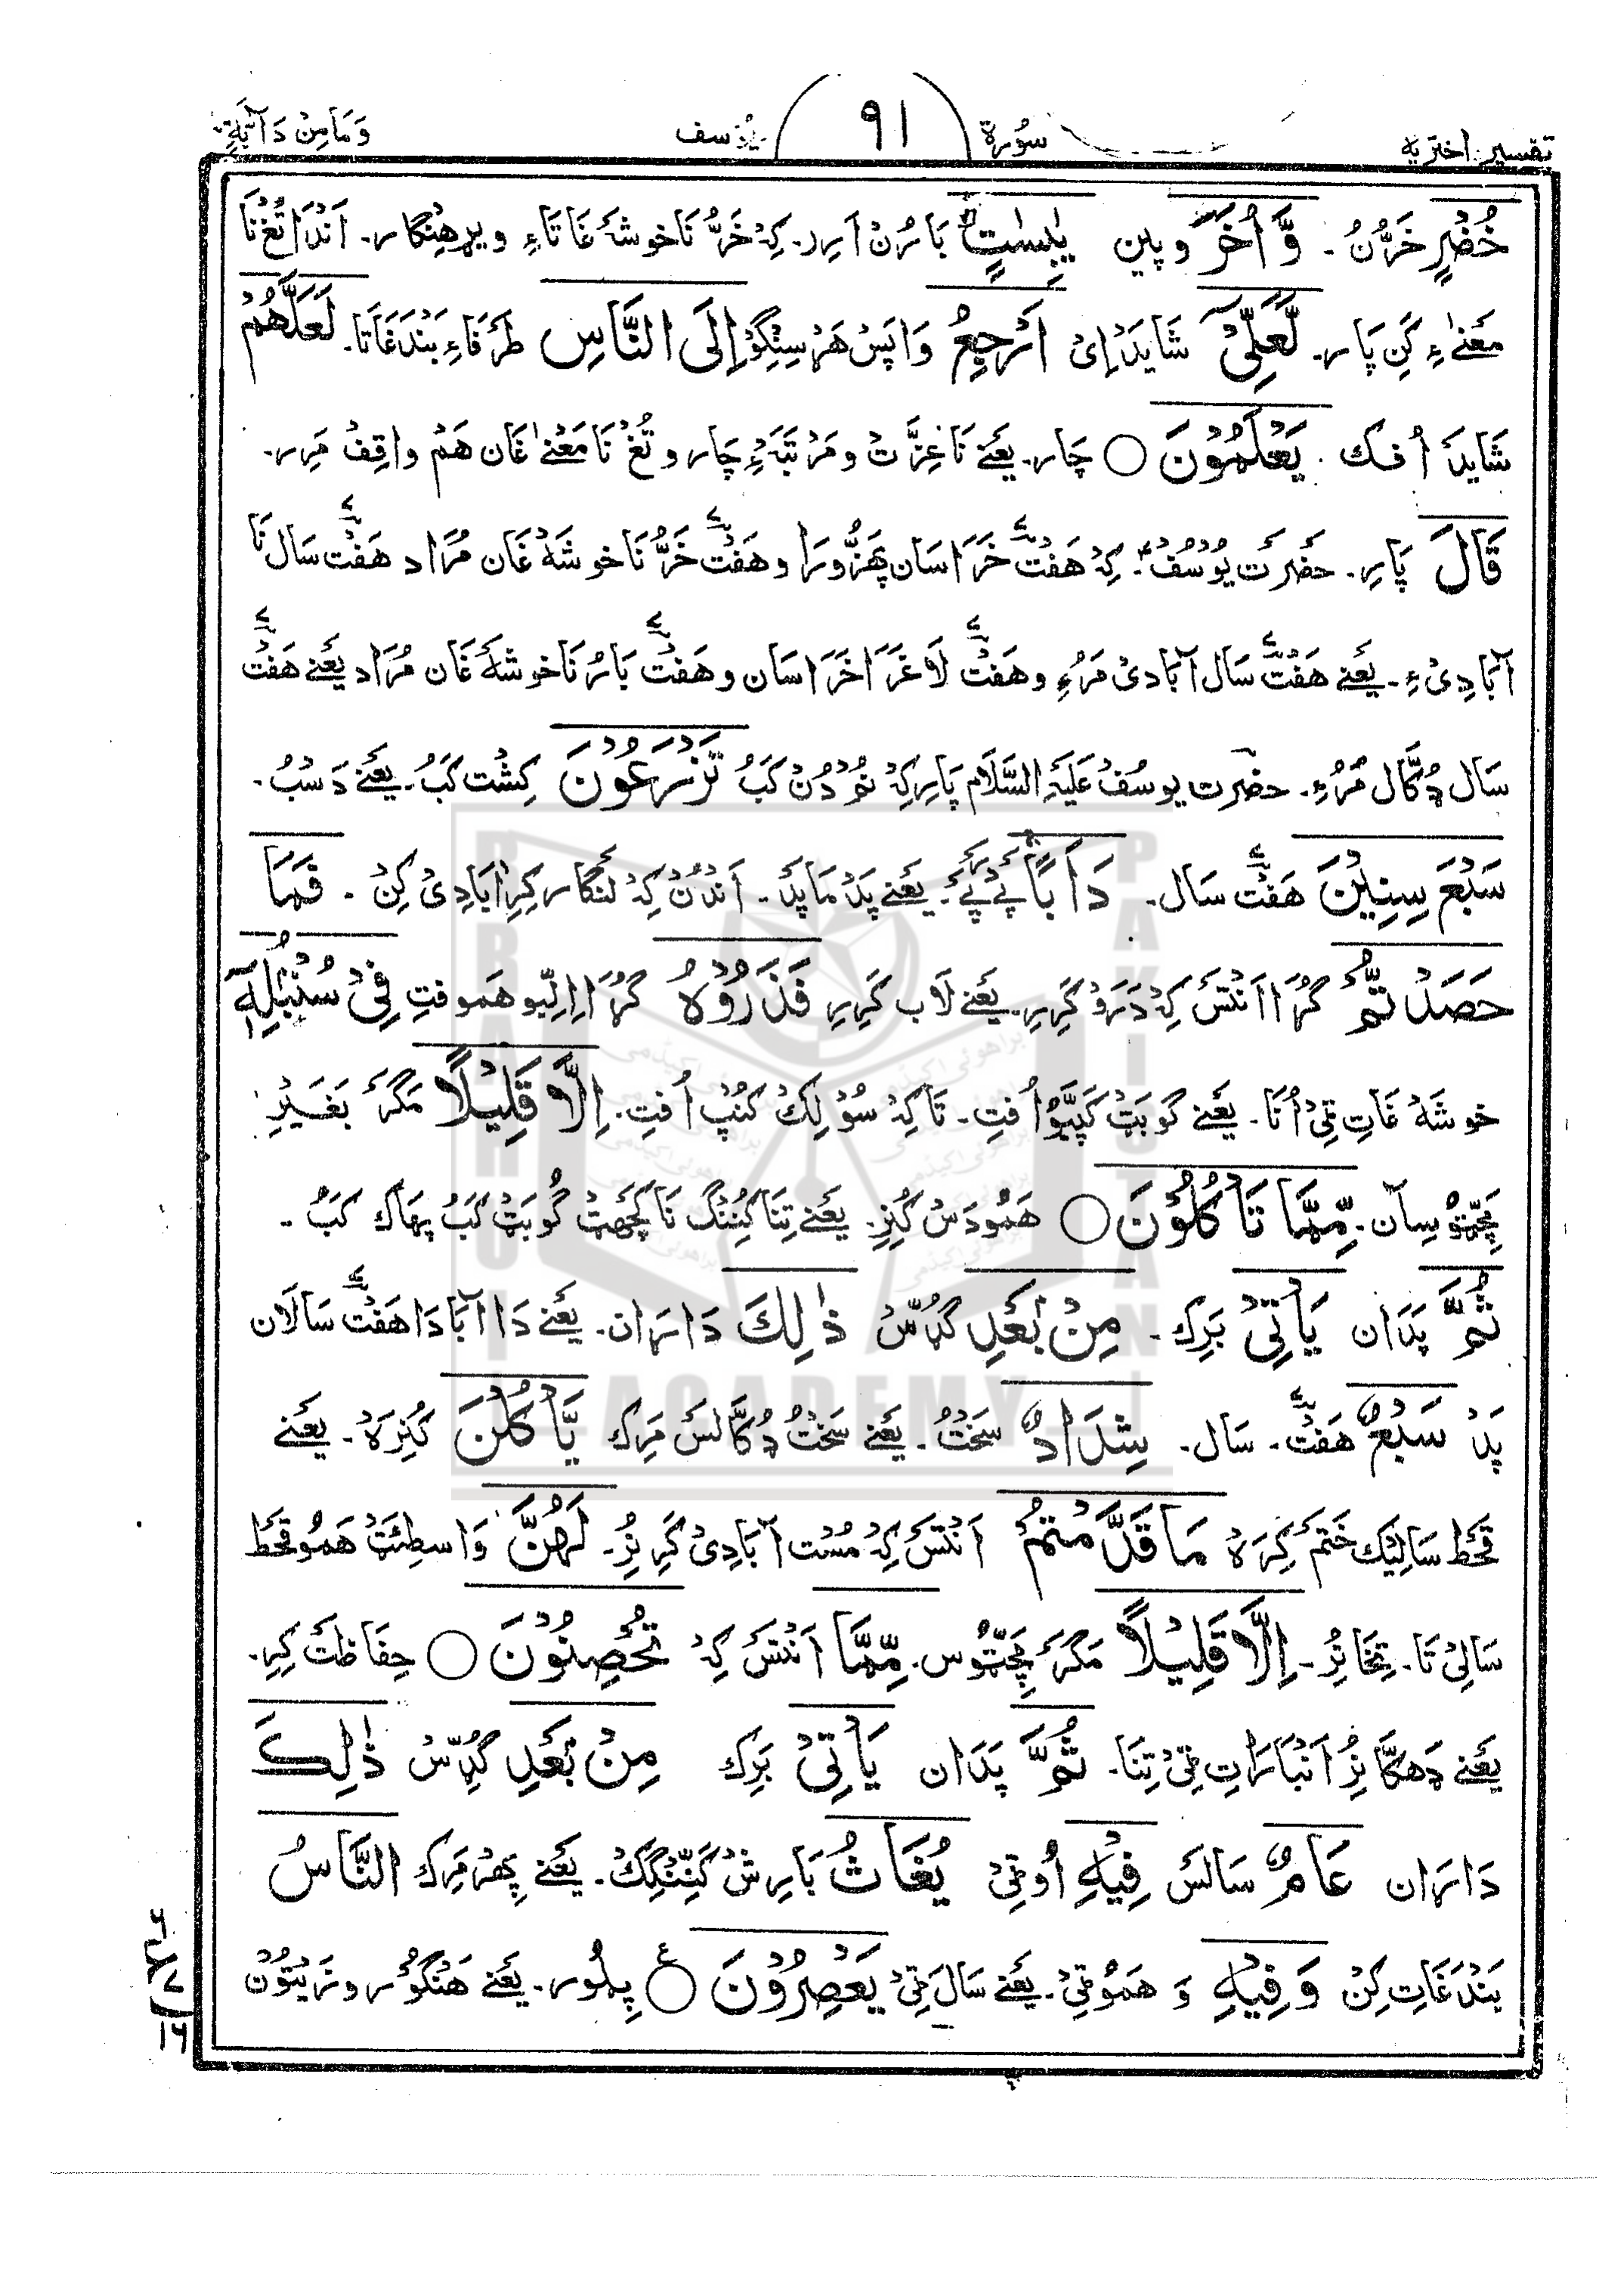 تفسیر اختریه سُورة ٩١ یُوسف وَمَامِنْ دَآبَّةٍ
خُضْرٍ خَرُّنُ ۔ وَّاُخَرَ و پین یٰبِسٰتٍ بَارُن اَرِر۔ کِہ خَرُّ نَا خوشَہ غَا تَاءِ ویڑھِنگار۔ اَندَا تُغ نَا
مَعْنٰیءِ کَنِ پَار۔ لَّعَلِّیْٓ شَایَد اِیْ اَرْجِعُ وَاپَس ھَرْسِنگِوْ اِلَی النَّاسِ طَرَفَاءِ بَندَغَاتَا۔ لَعَلَّھُمْ
شَایدَ اُفک ۔ یَعْلَمُوْنَ ○ چَار۔ یَعْنے نَا عِزَّت و مَرْتَبَہءِ چَار و تُغ نَا مَعْنےٰ غَان ھَمْ واقِفْ مَرِر۔
قَالَ پَارِ۔ حَضْرَت یُوْسُفْؑ۔ کِہ ھَفْت خَرَاسَان پَھزُّورَا و ھَفْت خَرُّ نَا خوشَہ غَان مُرَاد ھَفْت سَال نَا
آبَادِیْءِ۔ یَعْنے ھَفْت سَال آبَادیْ مَرُءِ و ھَفْت لَاغَرَ اخَرَاسَان و ھَفْت بَارُ نَا خوشَہ غَان مُرَاد یَعْنے ھَفْت
سَال دُکَّال مَرُءِ۔ حضرت یوسُفْ عَلَیْہِ السَّلَام پَارِ کِہ نُمْ دُنْ کَبُ تَزْرَعُوْنَ کِشْت کَبُ۔ یَعْنے دَسْبُ۔
سَبْعَ سِنِیْنَ ھَفْت سَال۔ دَاَبًا پَے پَے ۔ یَعْنے پَدْ مَا پَد۔ اَندُنْ کِہ لَنگار کِرِ اٰبَادِیْ کِنْ ۔ فَمَا
حَصَدْتُّمْ گُرَا اَنْتَسَ کِہ دَرَوْ کَرِرِ۔ یَعْنے لَاب کَرِرِ فَذَرُوْہُ گُرَا اِلِّبو ھَموفتِ فِیْ سُنْۢبُلِہٖٓ
خوشَہ غَاتِ تِیْ اُنَا۔ یَعْنے کوبَتْ کَپَّبُوْ اُفتِ۔ تَاکِہ سُوْلِکْ کُنْپ اُفتِ۔ اِلَّا قَلِیْلًا مَگَرَ بَغَیْرِ
مَچِّٹُ سِآن۔ مِّمَّا تَاْکُلُوْنَ ○ ھَمُودَسْ کُنِرِ۔ یَعْنے تِنَا کُنِنگ نَا کَچّھَٹْ کُوبَٹْ کَبُ پھَاک کَبُ ۔
ثُمَّ پَدَان یَاْتِیْ بَرِک ۔ مِنْۢ بَعْدِ گُڈّسْ ذٰلِکَ دَارَان۔ یَعْنے دَا اٰبَادَا ھَفْت سَالَان
پَدْ سَبْعٌ ھَفْت۔ سَال۔ شِدَادٌ سَخْتُ۔ یَعْنے سَخْتُ دُکَّالَس مَرِک یَّاْکُلْنَ کُنِرَہْ۔ یَعْنے
قَحْط سَالِیْک خَتم کِرَہْ مَا قَدَّمْتُمْ اَنْتَسَ کِہ مُسْت آبَادِیْ کَرِنُرْ۔ لَھُنَّ وَاسطِئَٹْ ھَمُو قَحط
سَالِیْ تَا۔ تِخَانُرْ۔ اِلَّا قَلِیْلًا مَگَرَ مَچِّٹُوس۔ مِّمَّا اَنْتَسَ کِہ تُحْصِنُوْنَ ○ حِفَاظَتْ کِرِ۔
یَعْنے دَھکَّانُرْ اَنْبَارَاتِ تِیْ تِنَا۔ ثُمَّ پَدَان یَاْتِیْ بَرِک مِنْۢ بَعْدِ گُڈِّسْ ذٰلِکَ
دَارَان عَامٌ سَالَسَ فِیْہِ اُوتِیْ یُغَاثُ بَارِشْ کَنِّنگِکْ۔ یَعْنے پِھر مَرِک النَّاسُ
بَندَغَاتِ کِنْ وَفِیْہِ وَ ھَمُوْتِیْ۔ یَعْنے سَال تِیْ یَعْصِرُوْنَ ○ ع پِلُور۔ یَعْنے ھَنگُور و زَیْتُوْن